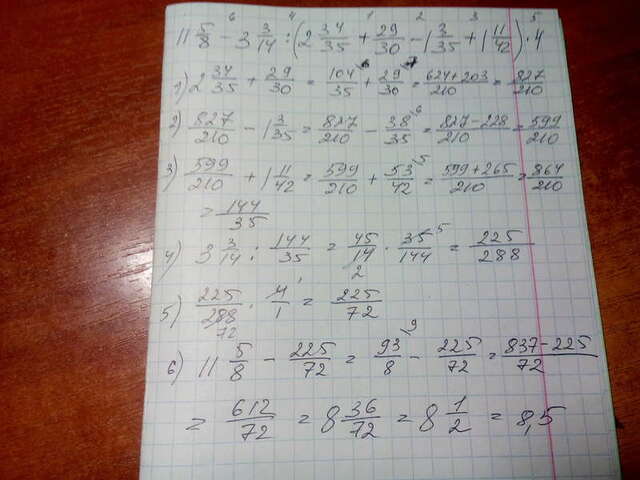 11 5/8 - 3 3/14 : (2 34/35 + 29/30 - 1 3/35 + 1 11/42) · 4
1) 2 34/35 + 29/30 = 104/35 + 29/30 = 624+203/210 = 827/210
2) 827/210 - 1 3/35 = 827/210 - 38/35 = 827-228/210 = 599/210
3) 599/210 + 1 11/42 = 599/210 + 53/42 = 599+265/210 = 864/210
= 144/35
4) 3 3/14 : 144/35 = 45/14 · 35/144 = 225/288
5) 225/288 · 4/1 = 225/72
6) 11 5/8 - 225/72 = 93/8 - 225/72 = 837-225/72
= 612/72 = 8 36/72 = 8 1/2 = 8,5